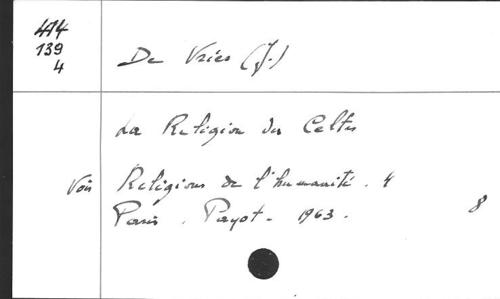 414
139
4
De Vries (J.)
La Religion des Celtes
Voir Religions de l'humanité. 4
Paris. Payot - 1963.
8